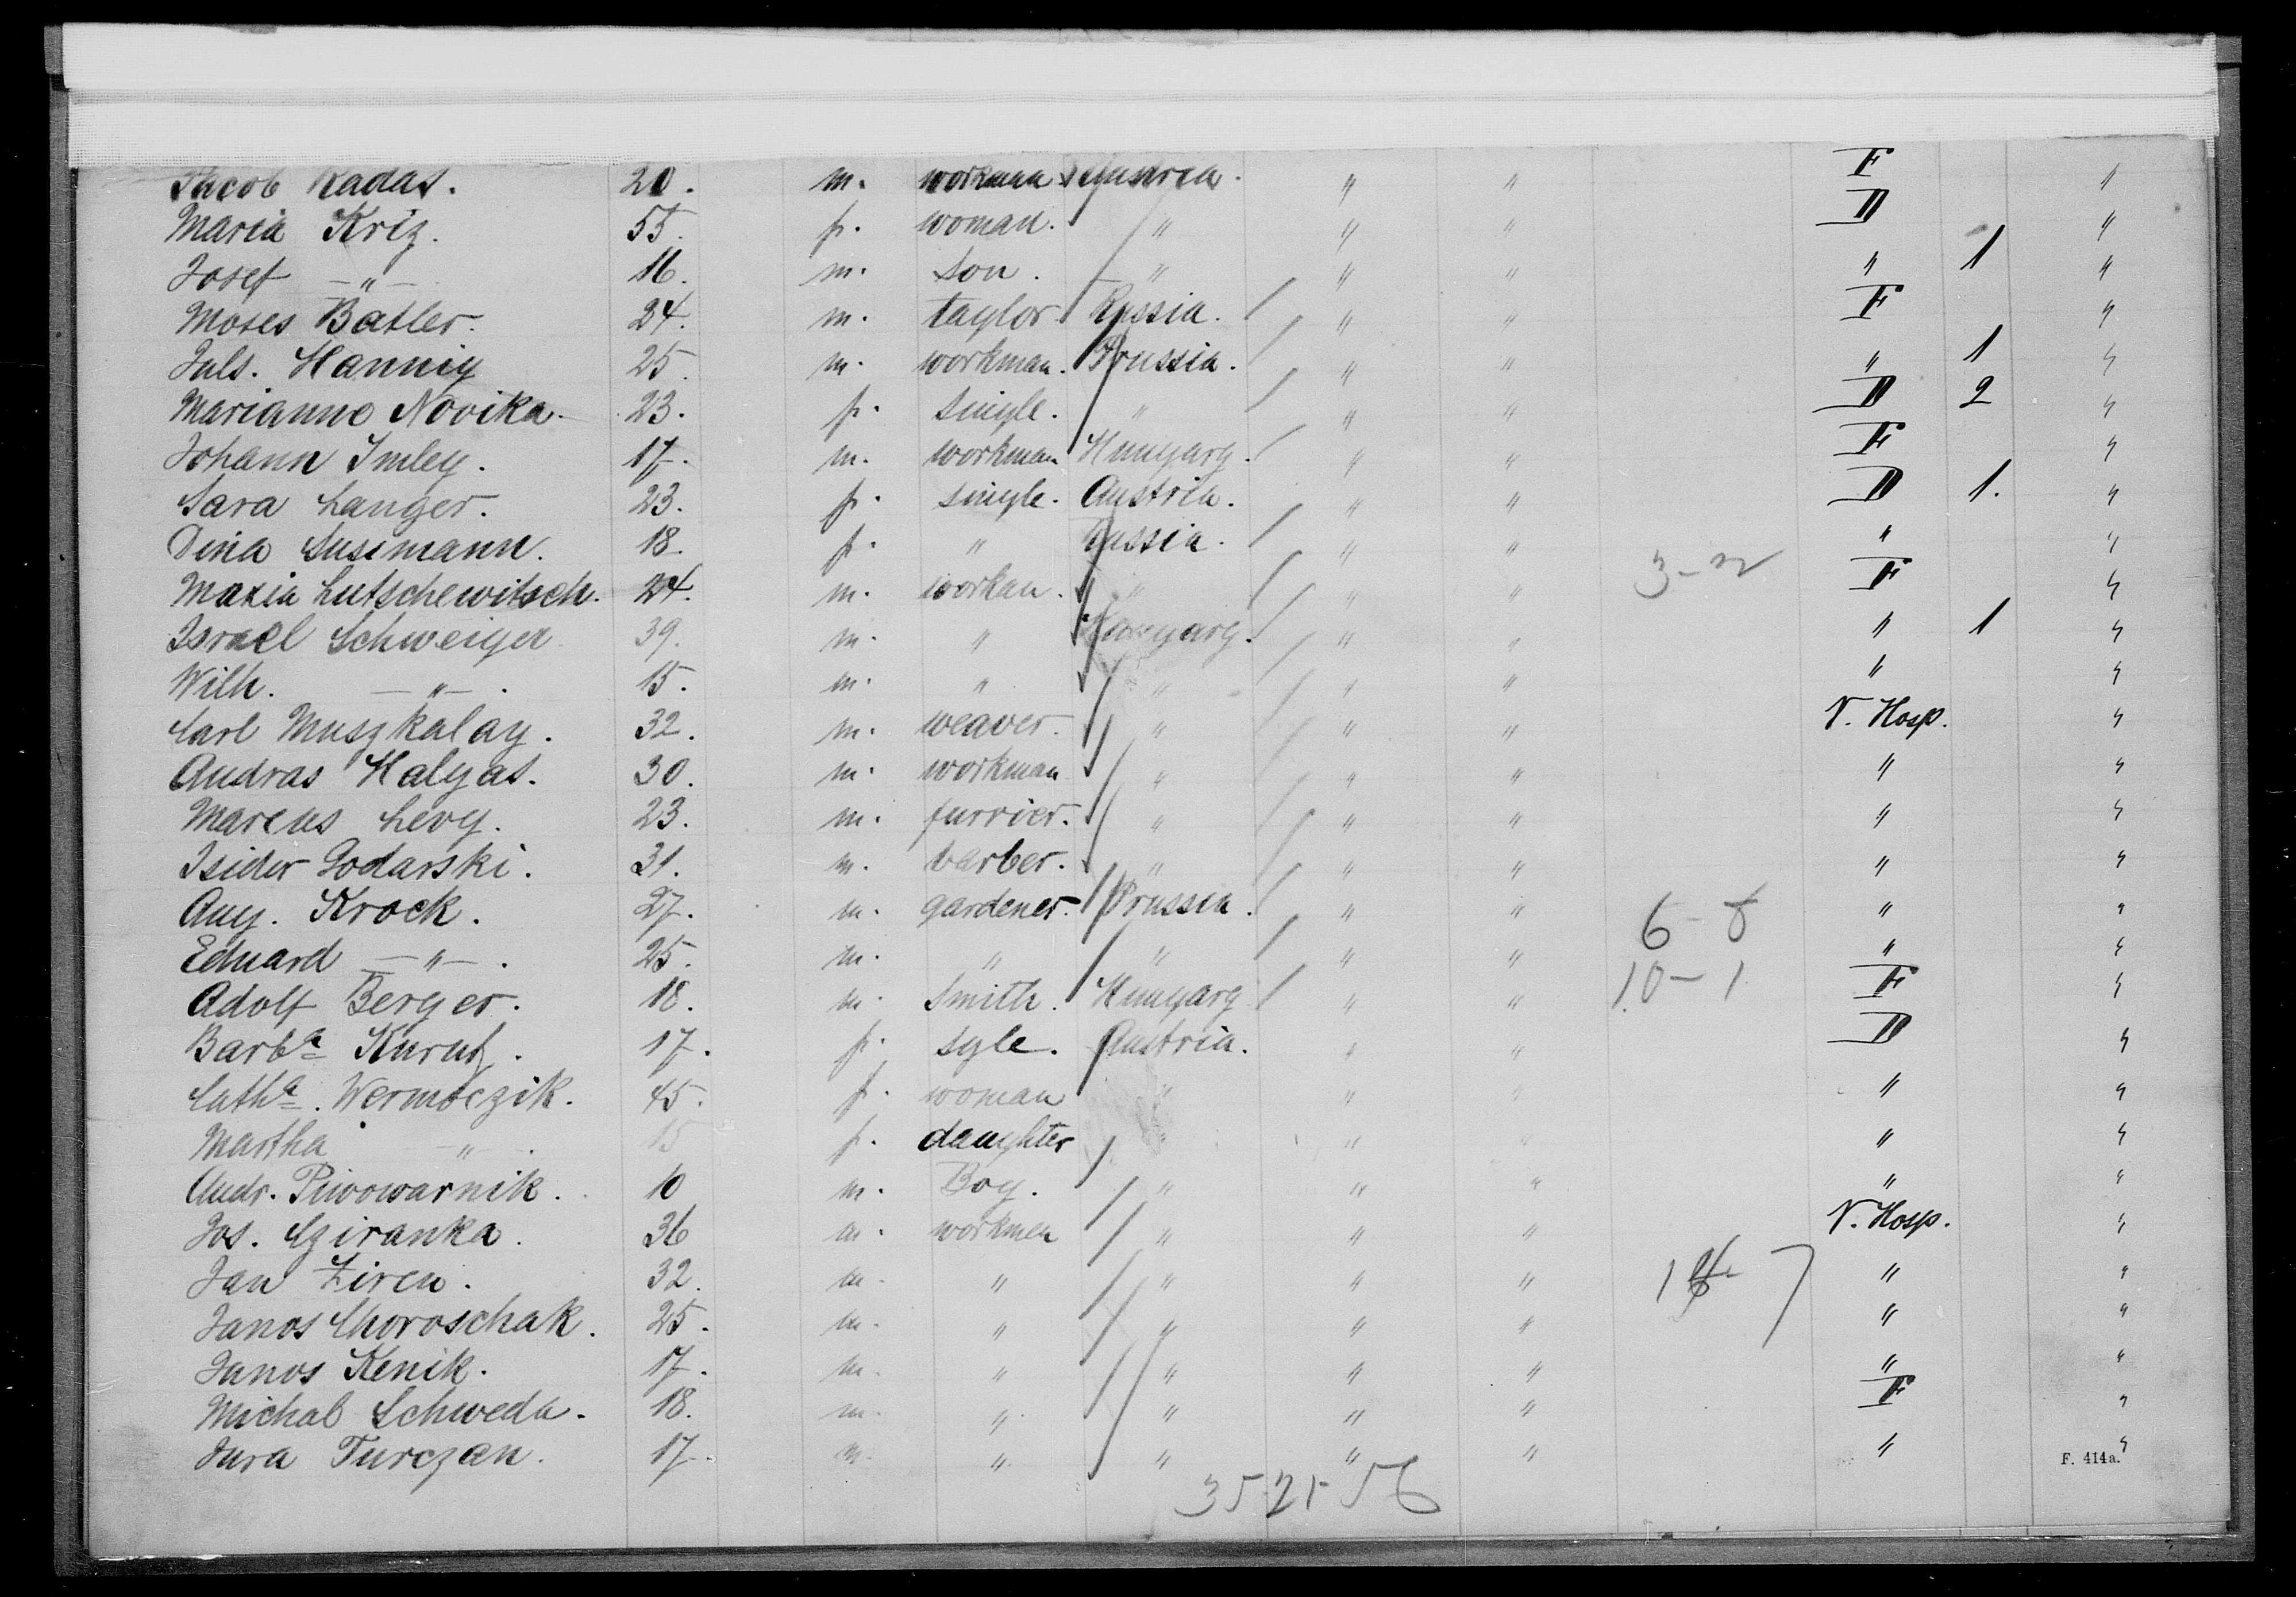 Jacob Kadas. 20. m. workman Austria. " " F "
Maria Kriz. 55. f. woman. " " " D "
Josef —"— 16. m. son. " " " " 1 "
Moses Batler. 24. m. taylor Russia. " " F "
Juls. Hannig 25. m. workman. Prussia. " " " 1 "
Marianne Novika. 23. f. single. " " " D 2 "
Johann Imley. 17. m. workman Hungary. " " F "
Sara Langer. 23. f. single. Austria. " " D 1. "
Dina Sussmann. 18. f. " Russia. " " " "
Maxia Lutschewitsch. 24. m. workan. " " " 3-22 F "
Israel Schweiger 39. m. " Hungary. " " " 1 "
Wilh. —"—. 15. m. " " " " " "
Carl Muszkalay. 32. m. weaver. " " " V. Hosp. "
Andras Halgas. 30. m. workman " " " " "
Marcus Levy. 23. m. furrier. " " " " "
Isider Godarski. 31. m. barber. " " " " "
Aug. Krock. 27. m. gardener. Prussia. " " 6-8 " "
Eduard —"—. 25. m. " " " " " "
Adolf Berger. 18. m. Smith. Hungary " " 10-1 F "
Barba Kurutz. 17. f. sgle. Austria. " " D "
Catha. Wermoczik. 45. f. woman " " " " "
Martha " . 15 f. daughter " " " " "
Andr. Piwowarnik. 10 m. Boy. " " " " "
Jos. Cziranka. 36 m. workmen " " " V. Hosp. "
Jan Ziren. 32. m. " " " " " "
Janos Choroschak. 25. m. " " " " " "
Janos Kenik. 17. m. " " " " " "
Michal Schweda. 18. m. " " " " F "
Jura Turczan. 17. m. " " " " " "
F. 414a.
35 21 56